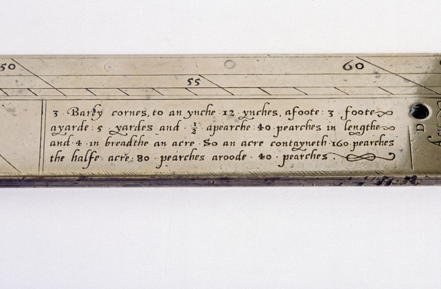 50 60
55
3 Barly cornes, to an ynche 12 ynches, afoote 3 foote
ayarde 5 yardes and 1/2 apearche 40 pearches in lengthe
and 4 in breadthe an acre So an acre contayneth 160 pearches
the halfe acre 80 pearches aroode 40 pearches
D